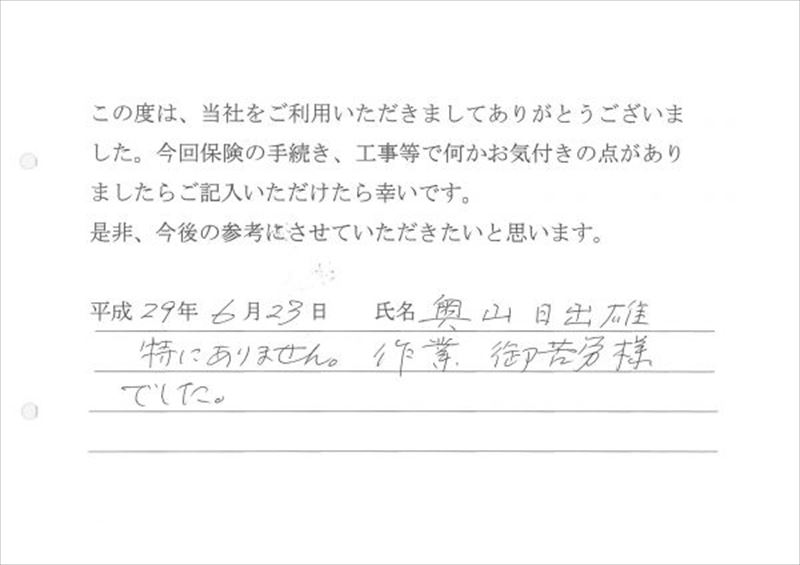 この度は、当社をご利用いただきましてありがとうございま
した。今回保険の手続き、工事等で何かお気付きの点があり
ましたらご記入いただけたら幸いです。
是非、今後の参考にさせていただきたいと思います。
平成29年6月23日 氏名 奥山日出雄
特にありません。作業 御苦労様
でした。